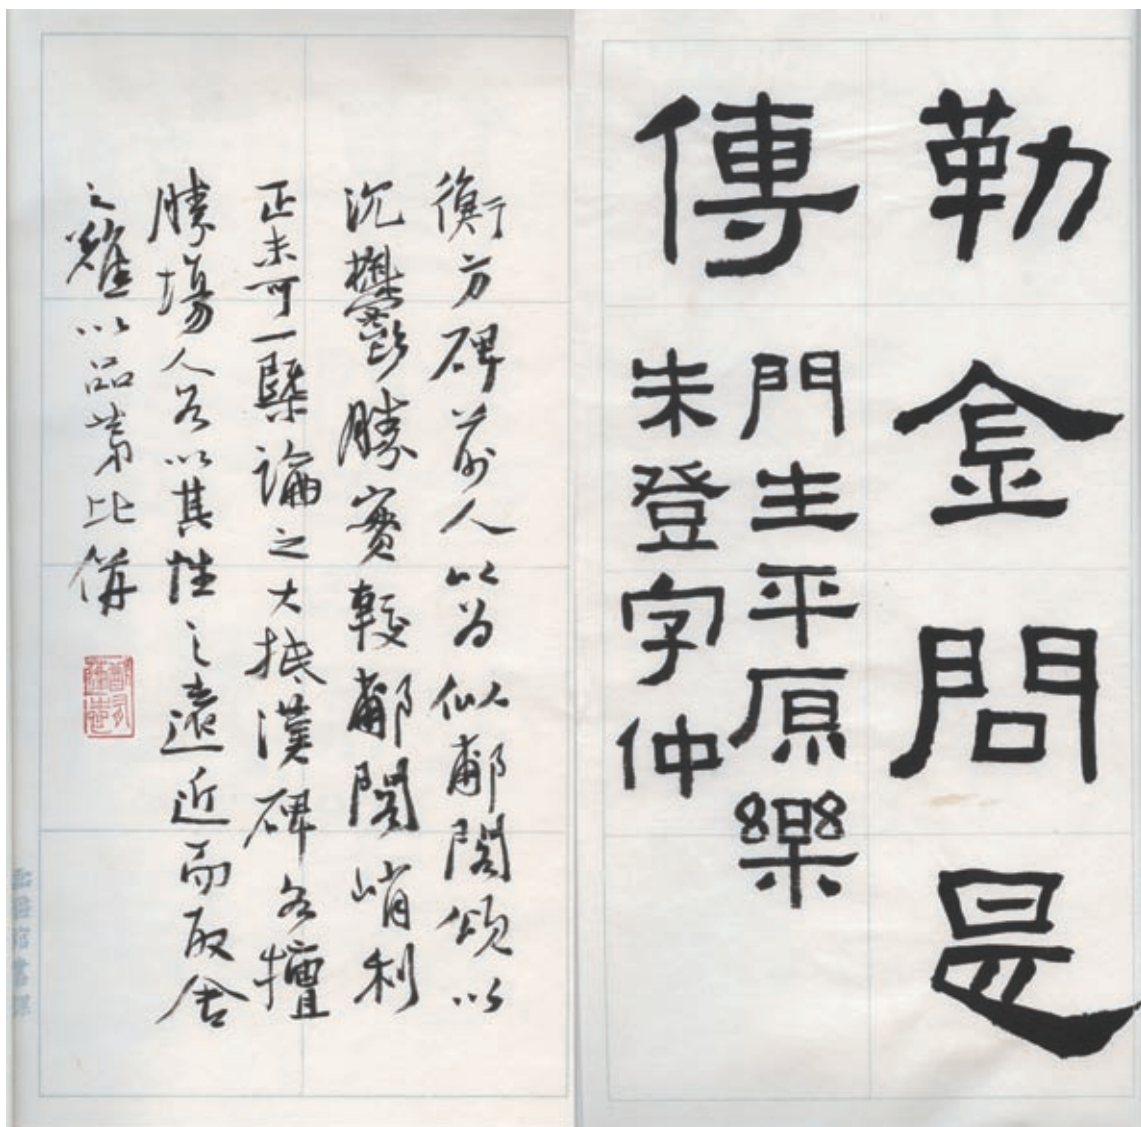 勒金問是
傳
門生平原樂
朱登字仲
衡方碑前人以為似郙閣頌以
沉鬱勝實較郙閣峭利
正未可一槩論之大抵漢碑各擅
勝場人各以其性之遠近而取舍
之難以品第比併